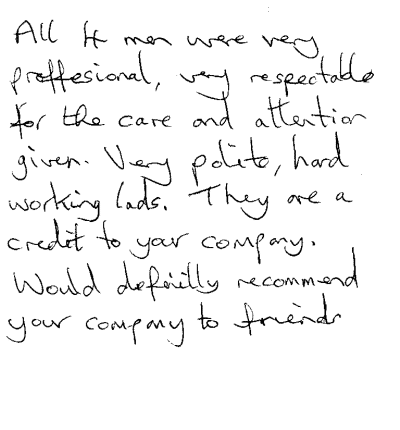 All 4 men were very
proffesional, very respectable
for the care and attention
given. Very polite, hard
working lads. They are a
credit to your company.
Would definilly recommend
your company to friends